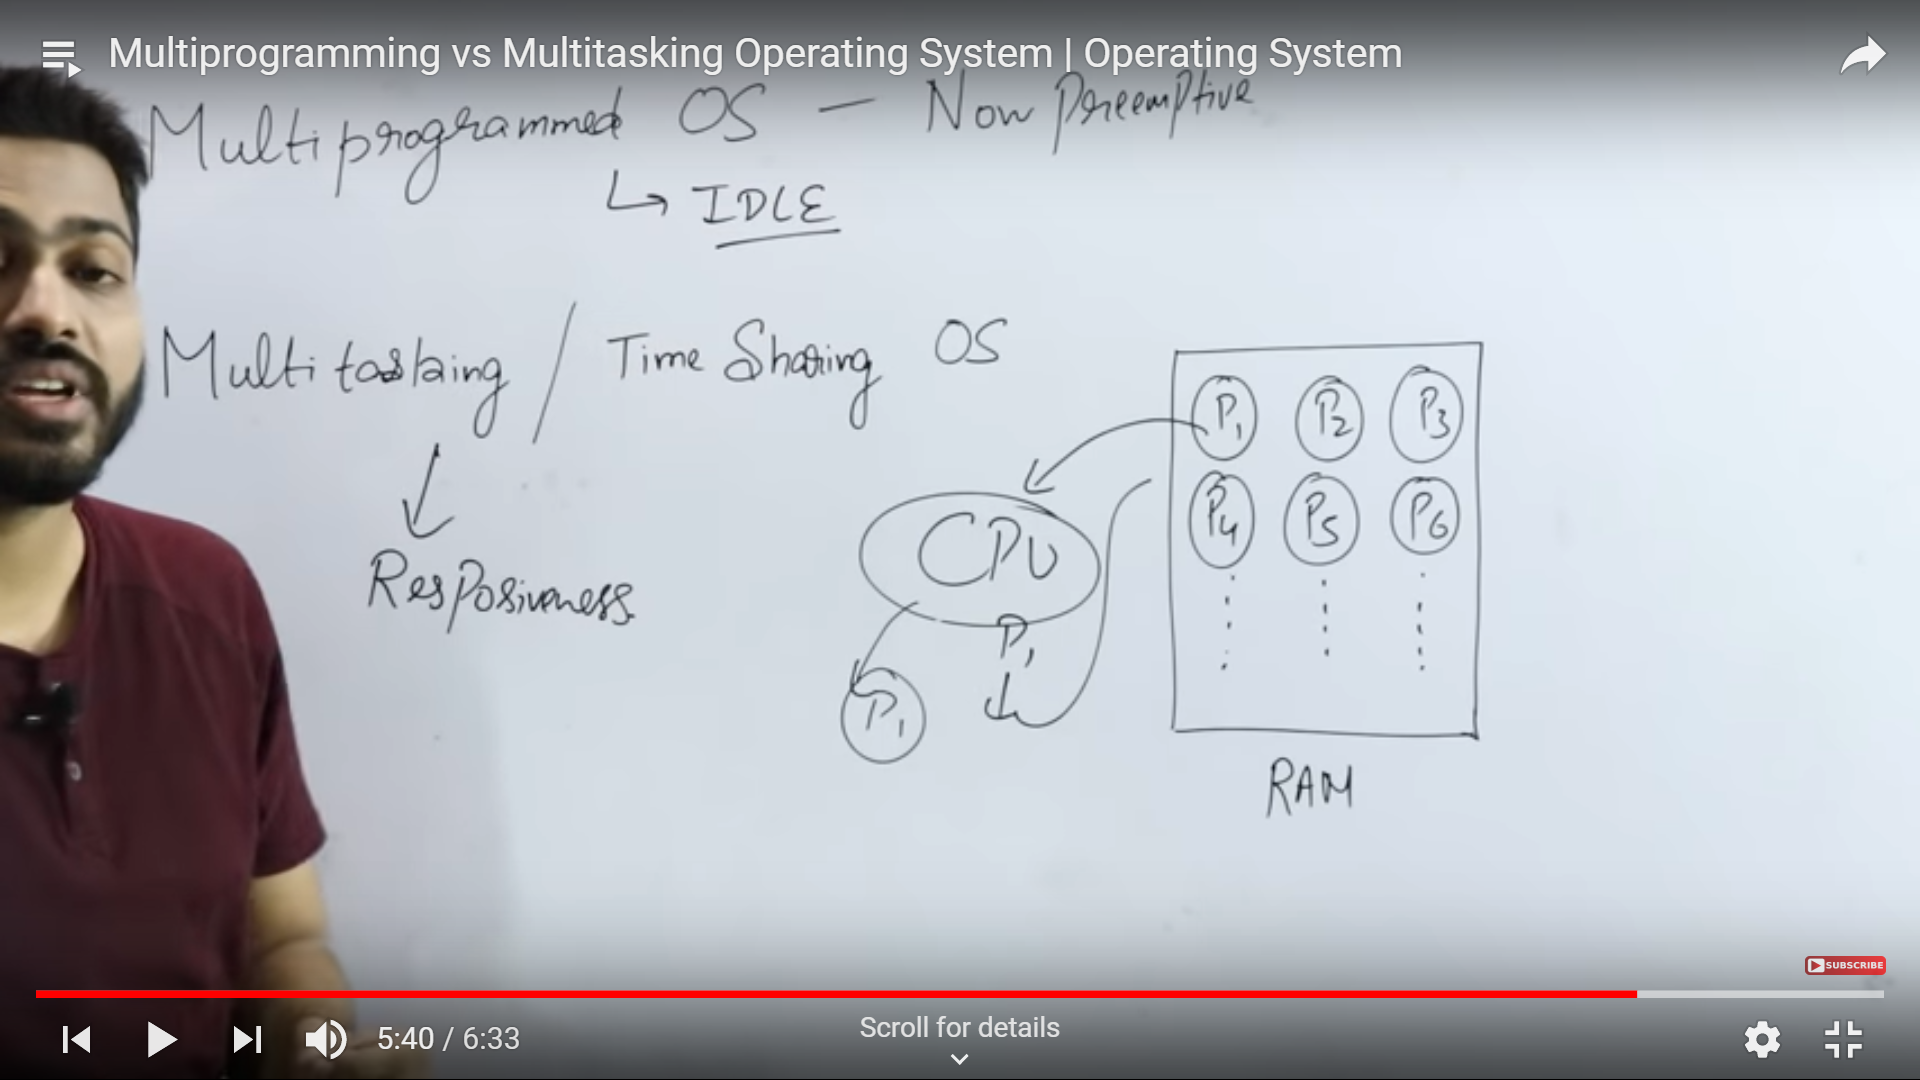 Multiprogramming vs Multitasking Operating System | Operating System
Multiprogrammed OS — Non Preemptive
↳ IDLE
Multitasking / Time Sharing OS
Resposiveness
CPU
P1
P1
P1 P2 P3
P4 P5 P6
RAM
SUBSCRIBE
5:40 / 6:33
Scroll for details